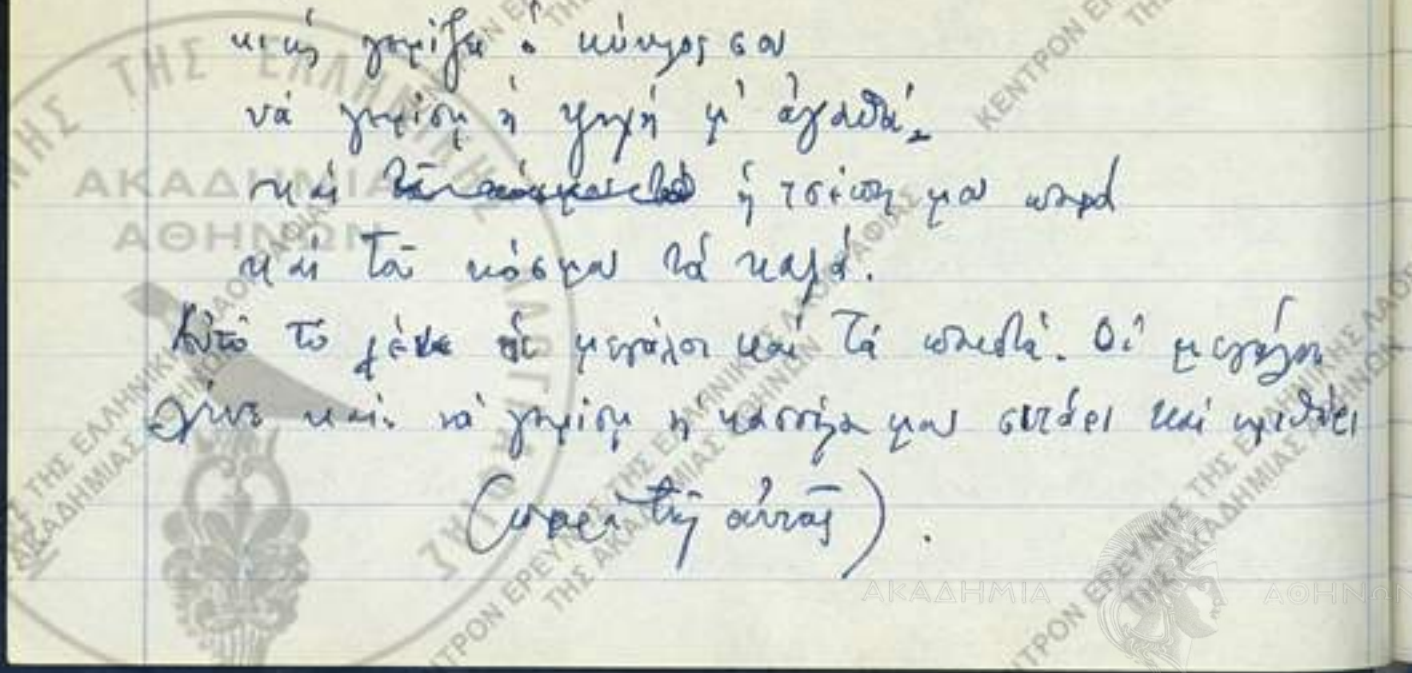 κι ὡς γυρίζει ὁ κύκλος σου
νά γεμίση ἡ ψυχή μ' ἀγαθά,
καί ἡ τσέπη μου παρά
καί τοῦ κόσμου τά καλά.
Αὐτό τό λένε οἱ μεγάλοι καί τά παιδιά. Οἱ μεγάλοι
λένε καί: νά γεμίση ἡ κασσέλα μας σιτάρι καί κριθάρι
(παρά τῆς αὐτῆς).
ΑΚΑΔΗΜΙΑ
ΑΘΗΝΩΝ
ΑΚΑΔΗΜΙΑ ΑΘΗΝΩΝ